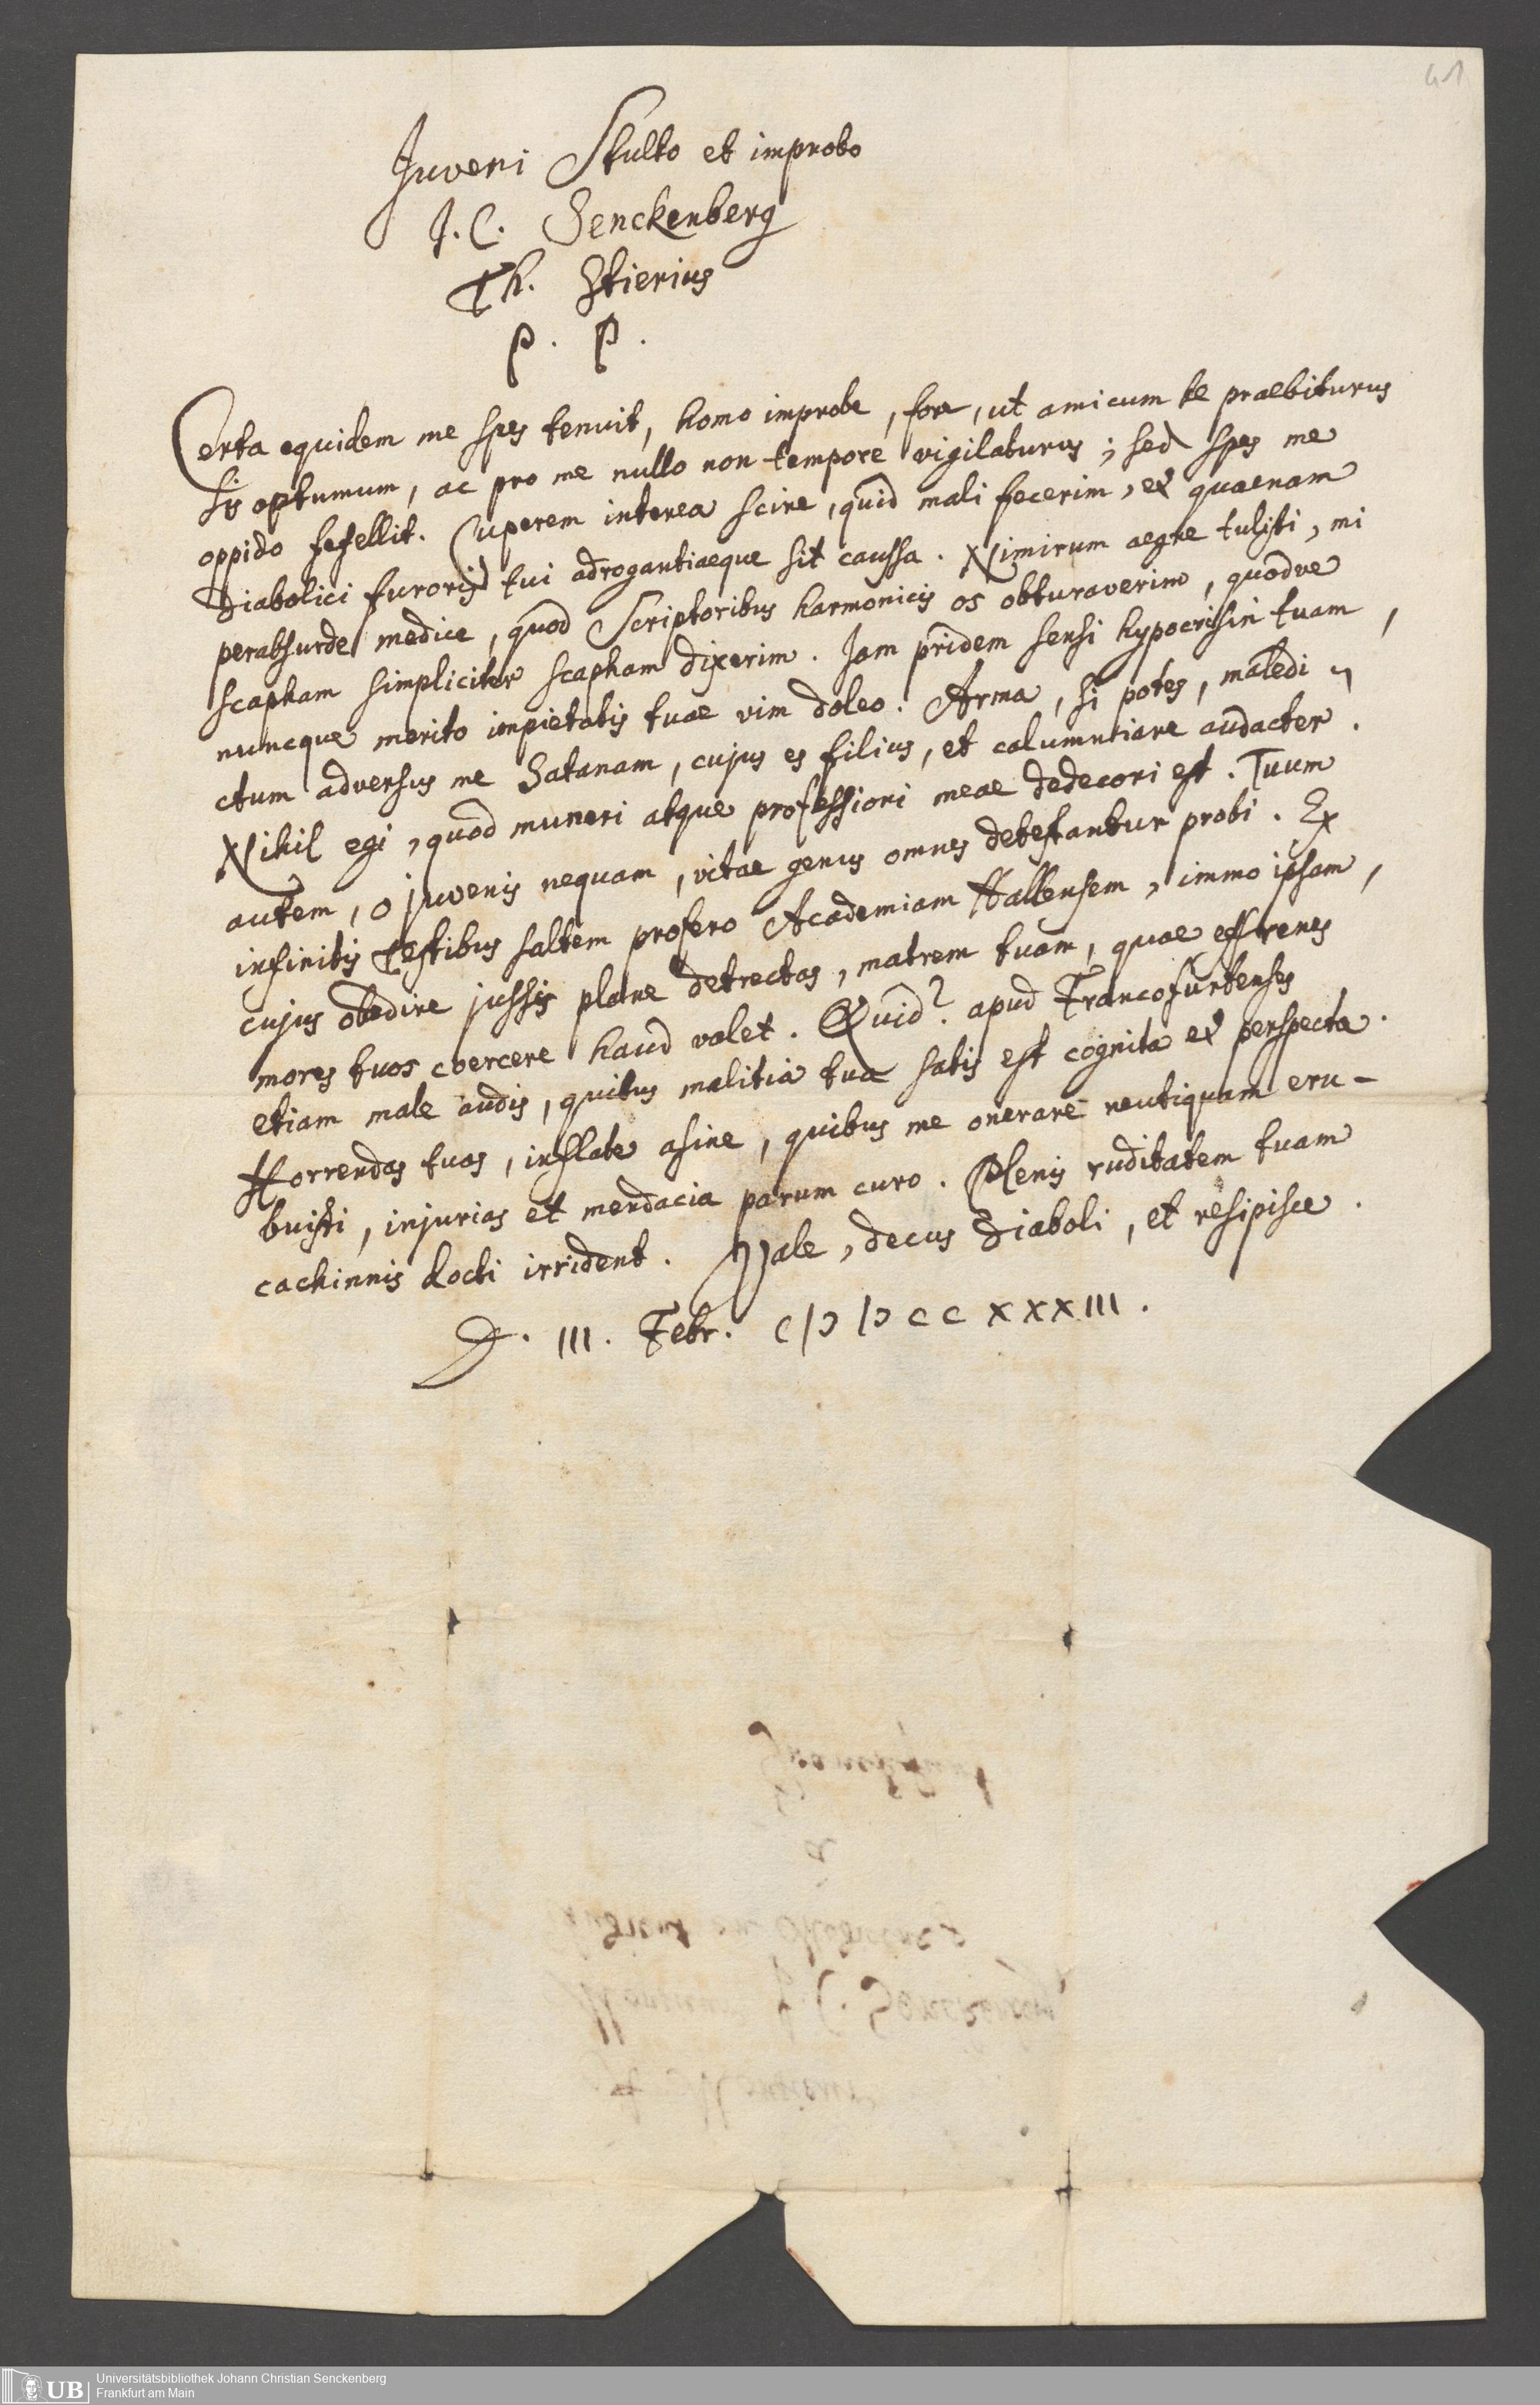 Juveni Stulto et improbo
J. C. Senckenberg
Th. Stierius
P. P.
Certa equidem me spes tenuit, homo improbe, fore, ut amicum te praebiturus
sis optumum, ac pro me nullo non tempore vigilaturus; sed spes me
oppido fefellit. Cuperem interea scire, quid mali fecerim, et quaenam
Diabolici furoris tui adrogantiaeque sit caussa. Nimirum aegre tulisti, mi
perabsurde medice, quod Scriptoribus harmonicis os obturaverim, quodve
scapham simpliciter scapham dixerim. Jam pridem sensi hypocrisin tuam,
nuncque merito impietatis tuae vim doleo. Arma, si potes, maledi-
ctum adversus me Satanam, cujus es filius, et calumniare audacter.
Nihil egi, quod muneri atque professioni meae dedecori est. Tuum
autem, o juvenis nequam, vitae genus omnes detestantur probi. Ex
infinitis testibus saltem profero Academiam Hallensem, immo ipsam,
cujus obedire jussis plane detrectas, matrem tuam, quae effrenes
mores tuos coercere haud valet. Quid? apud Francofurtenses
etiam male audis, quibus malitia tua satis est cognita et perspecta.
Horrendas tuas, inflate asine, quibus me onerare neutiquam eru-
buisti, injurias et mendacia parum curo. Plenis ruditatem tuam
cachinnis docti irrident. Vale, decus Diaboli, et resipisce.
D. III. Febr. CIↃ IↃ CC XXXIII.
UB
Universitätsbibliothek Johann Christian Senckenberg
Frankfurt am Main